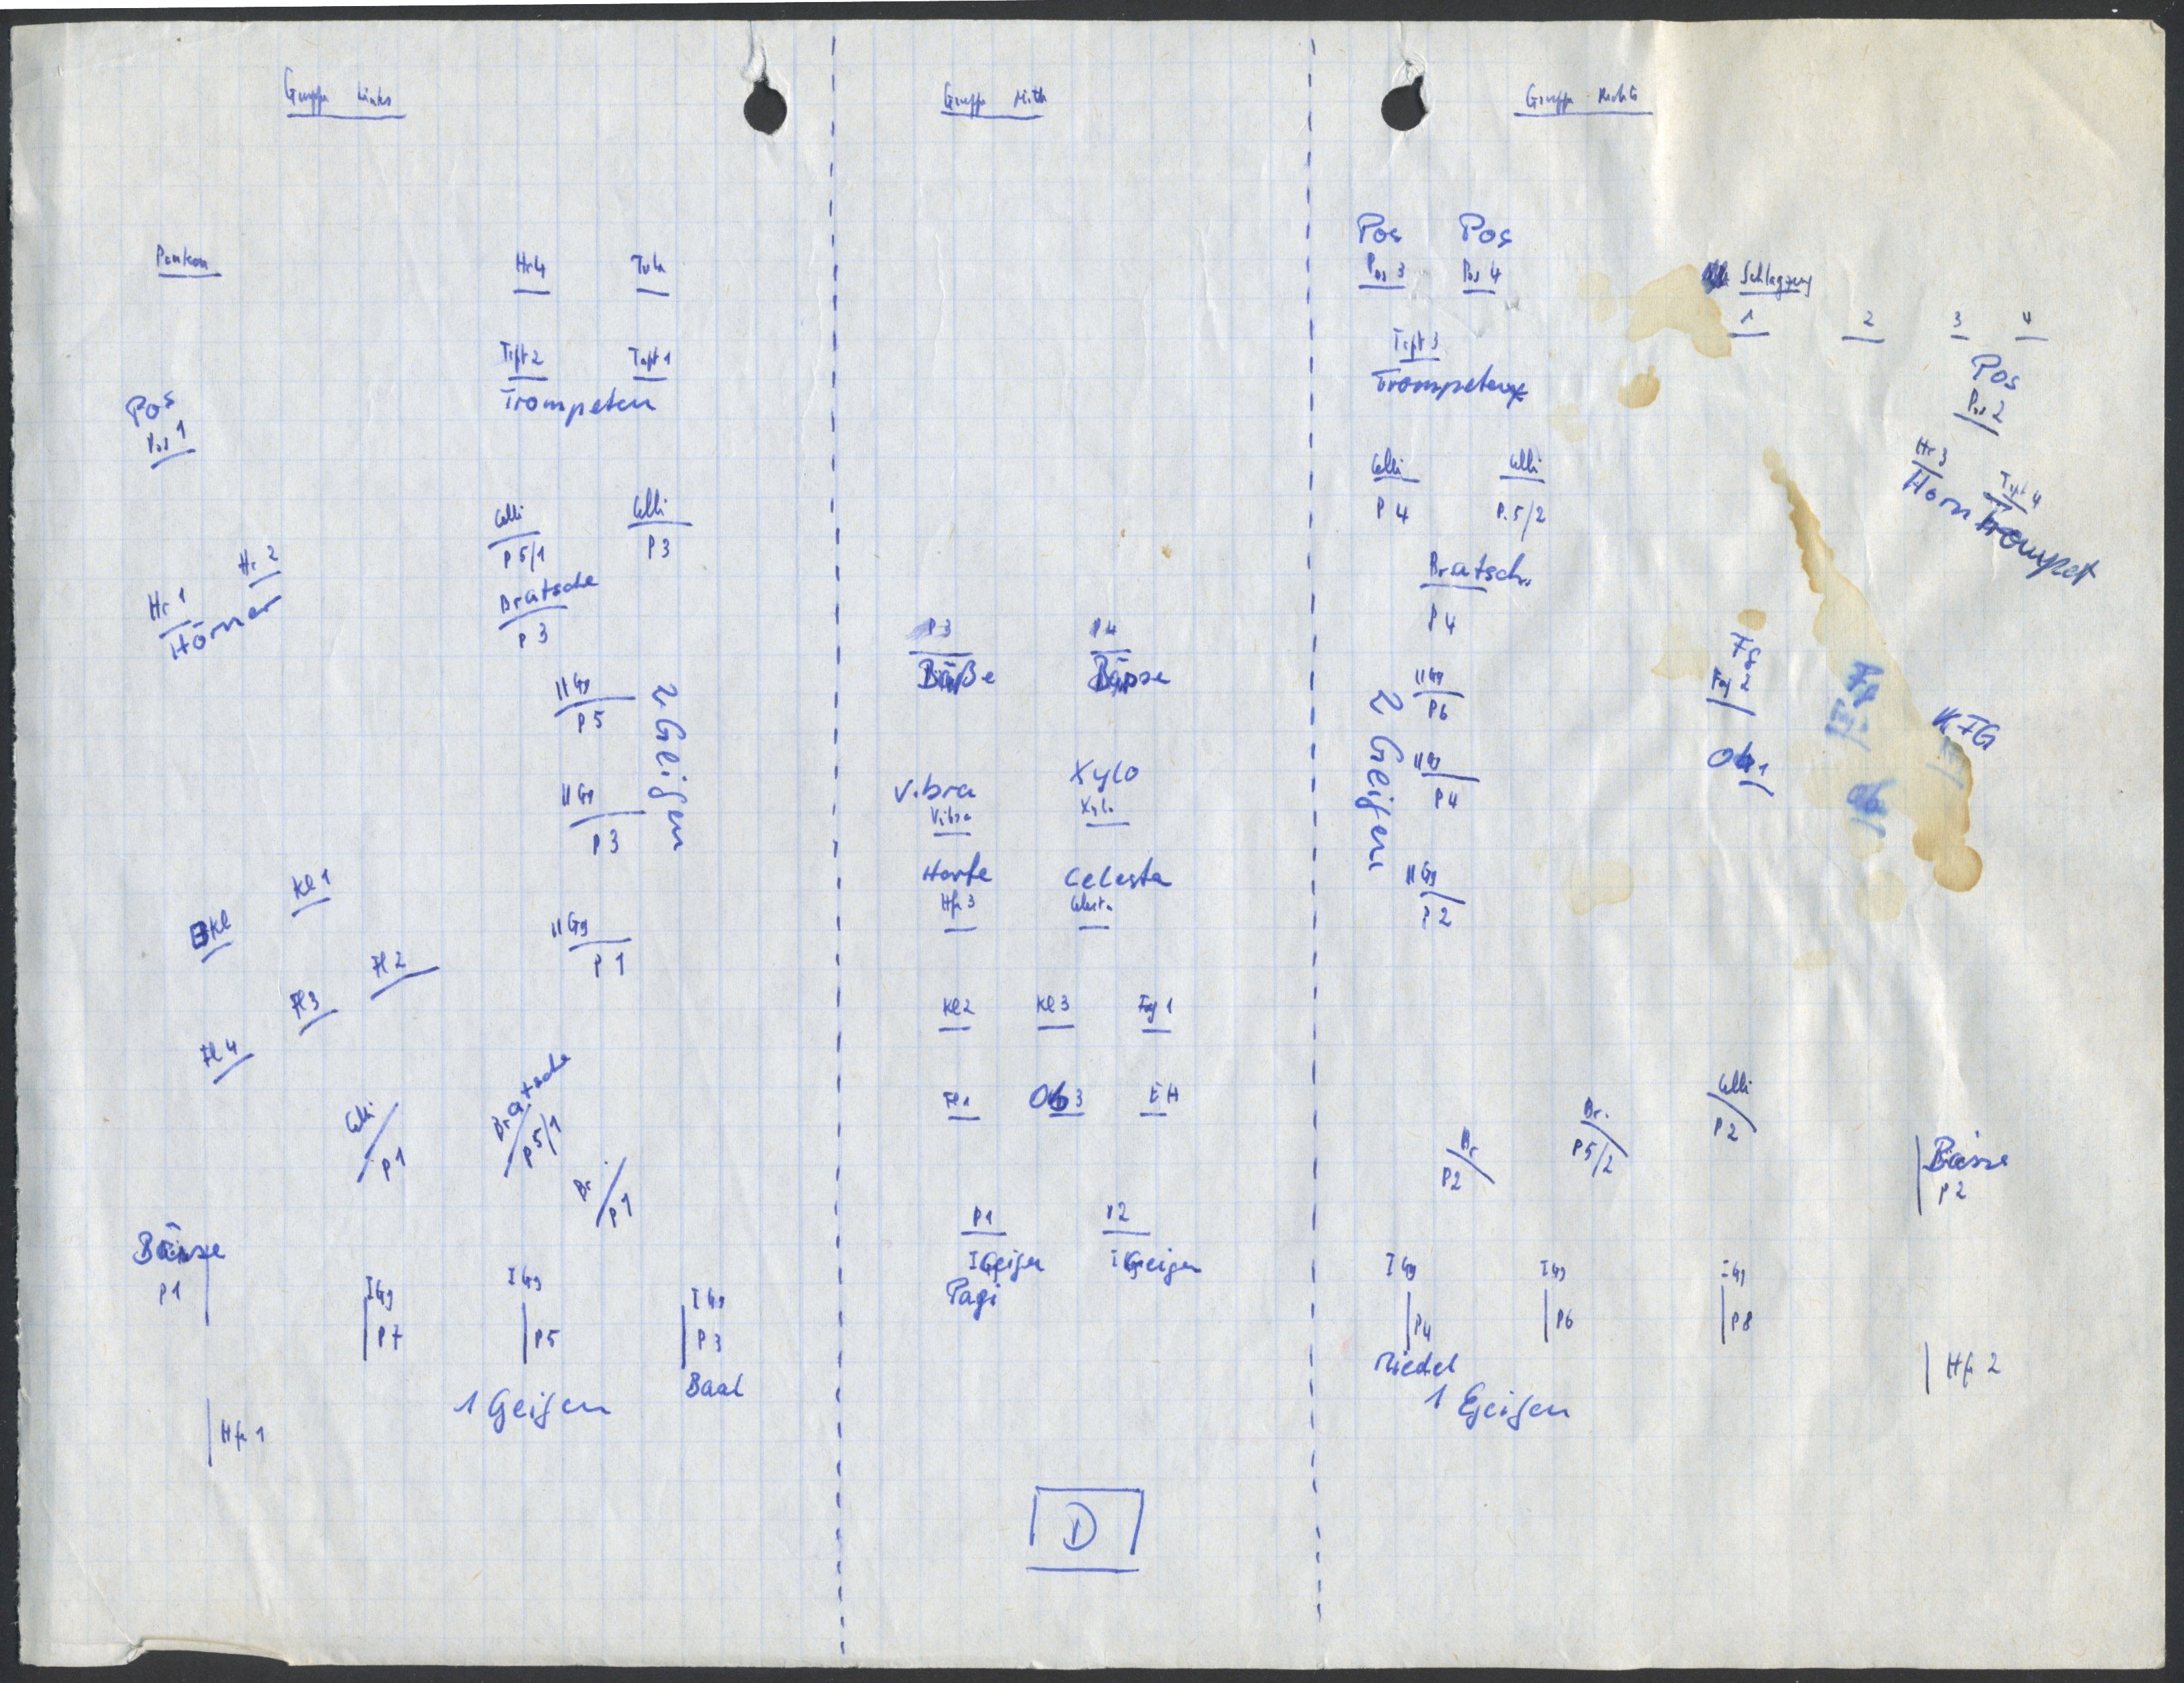 Gruppe Links
Pauken
Hr 4 Tuba
Trpt 2 Trpt 1
Trompeten
Pos
Pos 1
Celli Celli
P 5/1 P 3
Bratsche
P 3
Hr 1 Hr 2
Hörner
II Gg
P 5
2 Geigen
II Gg
P 3
Kl 1
BKl
II Gg
P 1
Fl 2
Fl 3
Fl 4
Celli
P 1
Bratsche
P 5/1
Br
P 1
Bässe
P 1
I Gg I Gg I Gg
P 7 P 5 P 3
Baal
1 Geigen
Hfe 1
Gruppe Mitte
P 3 P 4
Bäße Bässe
Vibra Xylo
Vibra Xylo
Harfe Celesta
Hfe 3 Celesta
Kl 2 Kl 3 Fag 1
Fl 1 Ob 3 EH
P 1 P 2
I Geigen I Geigen
Pagi
D
Gruppe Rechts
Pos Pos
Pos 3 Pos 4
Schlagzeug
1 2 3 4
Trpt 3
Trompeten
Pos
Pos 2
Hr 3 Trpt 4
Horn Trompet
Celli Celli
P 4 P. 5/2
Bratsch.
P 4
II Gg
P 6
2 Geigen
II Gg
P 4
II Gg
P 2
Fg
Fag 2
Fg
K-FG
Ob 1
Ob
Br
P 2
Br.
P 5/2
Celli
P 2
Bässe
P 2
I Gg I Gg I Gg
P 4 P 6 P 8
Riedel
1 Geigen
Hfe 2